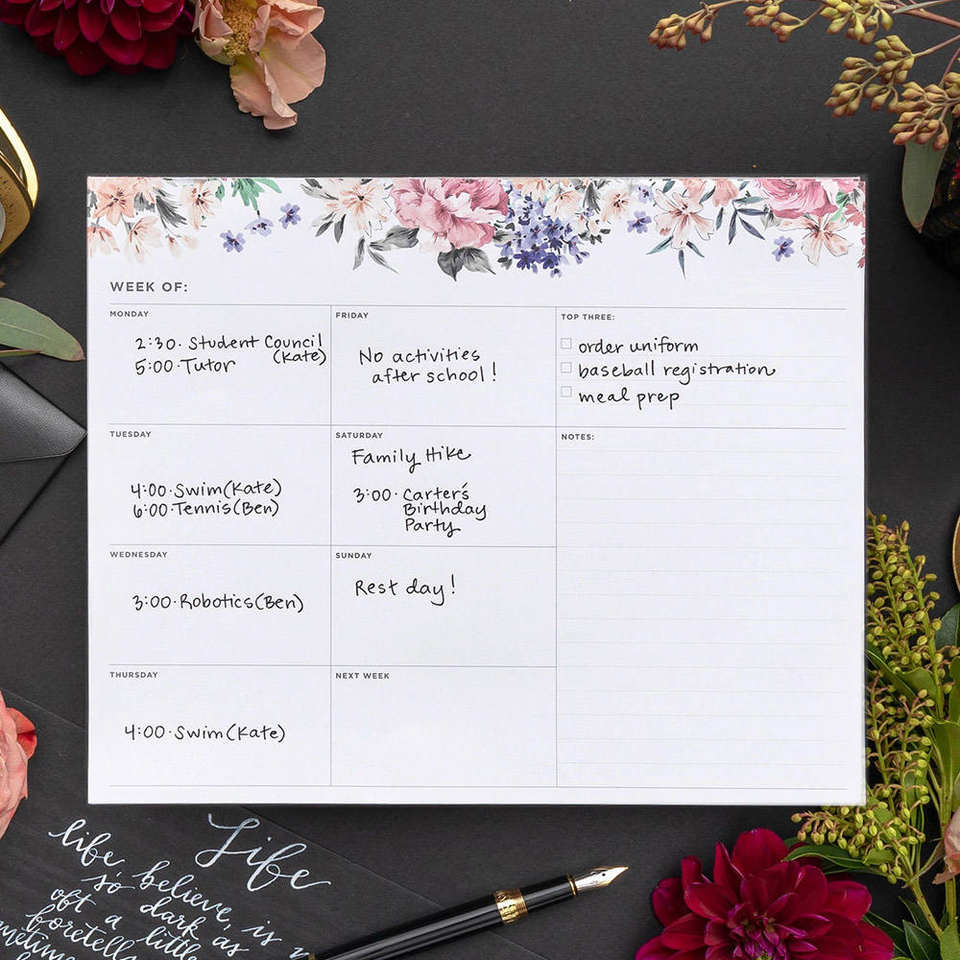 WEEK OF:
MONDAY
2:30· Student Council
(Kate)
5:00·Tutor
TUESDAY
4:00·Swim(Kate)
6:00·Tennis(Ben)
WEDNESDAY
3:00·Robotics(Ben)
THURSDAY
4:00·Swim(Kate)
FRIDAY
No activities
after school!
SATURDAY
Family Hike
3:00· Carter's
Birthday
Party
SUNDAY
Rest day!
NEXT WEEK
TOP THREE:
order uniform
baseball registration
meal prep
NOTES:
Life
life, believe, is
so dark as
oft a little
foretells